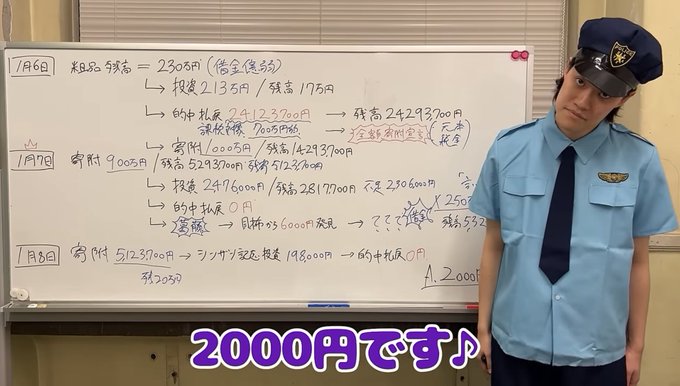 1月6日 粗品残高=230万円(借金僅弱)
↳投資213万円/残高17万円
↳的中払戻24123700円→残高24293700円
700万円
→全額寄附宣言
↳寄附1000万円/残高14293700円
1月7日 寄附900万円/残高5293700円 残寄5123700円
↳投資2476000円/残高2817700円 不足2306000円
↳的中払戻0円
↳葛藤→貝柿から6000円発見→???借金
残高532
1月8日 寄附5123700円→シンザン記念投資198000円→的中払戻0円
残20万円
A.2000円
POLICE
2000円です♪